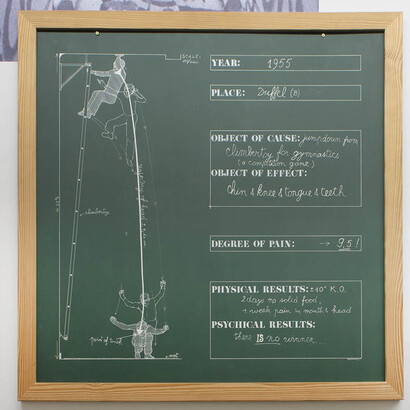 SCALE:
YEAR: 1955
PLACE: Duffel (B)
OBJECT OF CAUSE: jumpdown from
climbertry for gymnastics
(a competition game)
OBJECT OF EFFECT:
chin & knee & tongue & teeth
climbertry
DEGREE OF PAIN: → 9,5!
PHYSICAL RESULTS: ±10" K.O.
2 days no solid food,
+ week pain in mouth & head
PSYCHICAL RESULTS:
there IS no winner...
point of